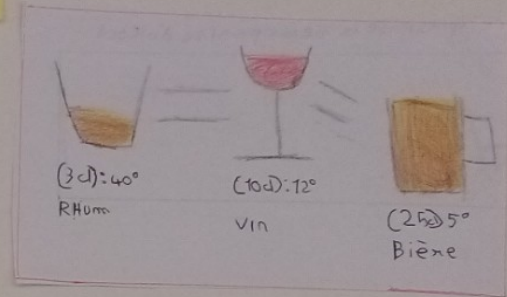 (3cl):40°
RHum
(10cl):12°
Vin
(25cl)5°
Bière